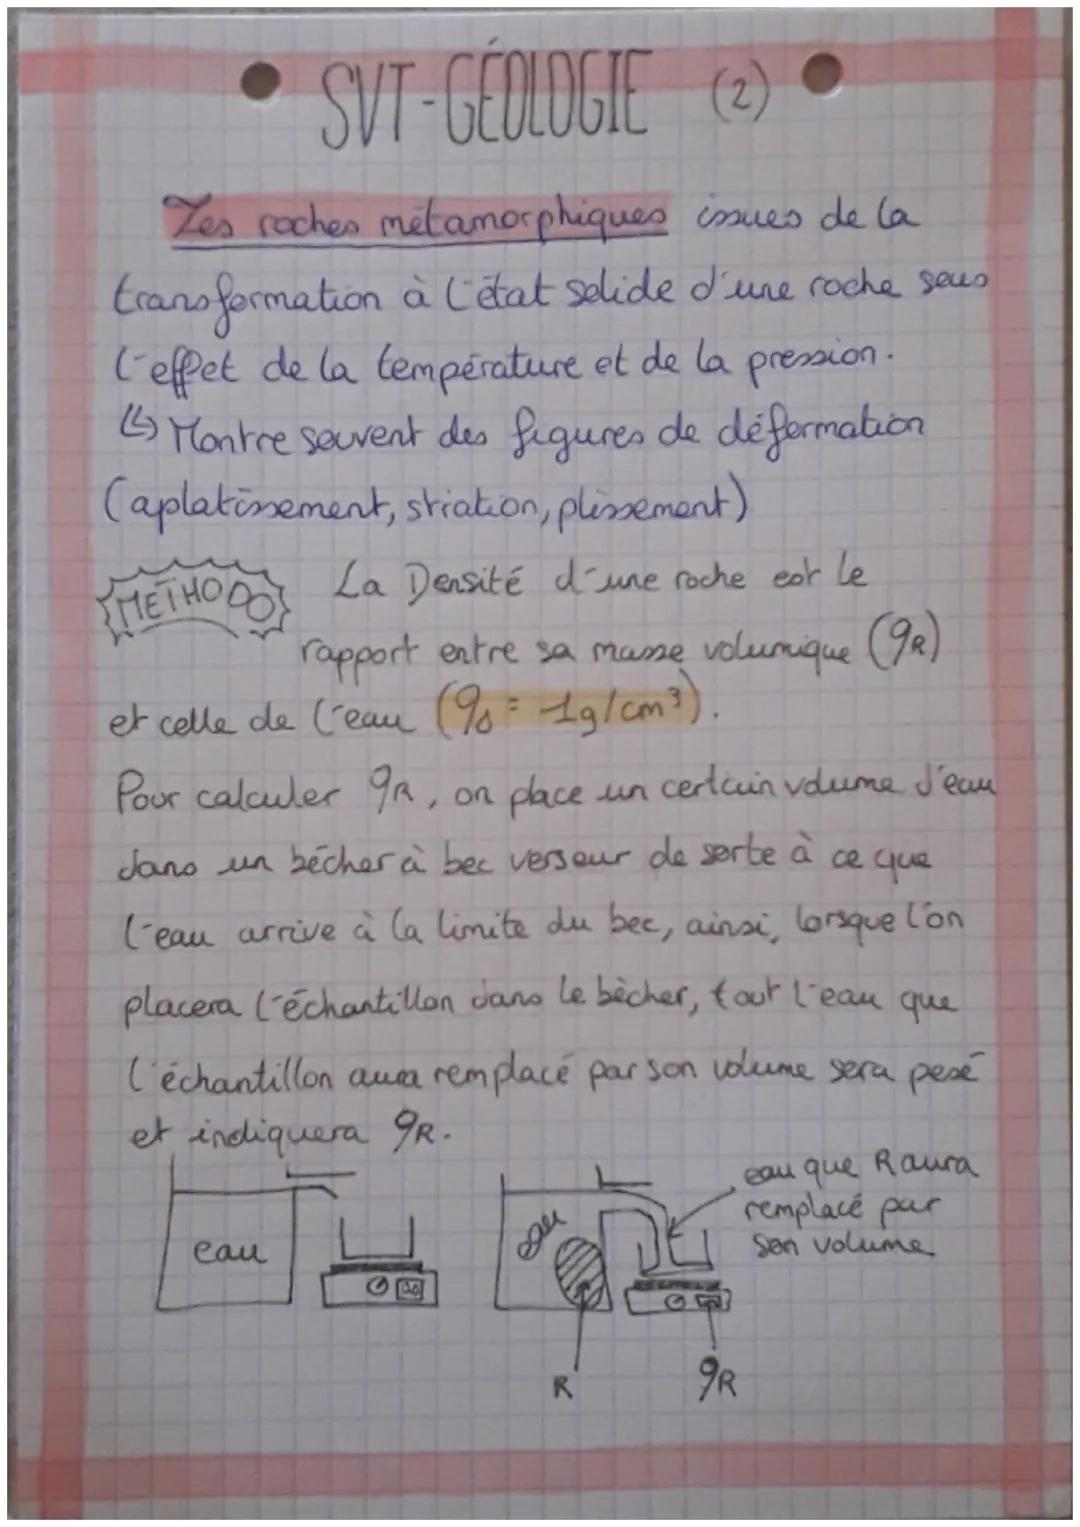 SVT-GÉOLOGIE (2)
Les roches métamorphiques issues de la
transformation à l'état solide d'une roche sous
l'effet de la température et de la pression.
↳ Montre souvent des figures de déformation
(aplatissement, striation, plissement)
METHODO La Densité d'une roche est le
rapport entre sa masse volumique (ρR)
et celle de l'eau (ρ0 = 1g/cm³).
Pour calculer ρR, on place un certain volume d'eau
dans un bécher à bec verseur de sorte à ce que
l'eau arrive à la limite du bec, ainsi, lorsque l'on
placera l'échantillon dans le bècher, tout l'eau que
l'échantillon aura remplacé par son volume sera pesé
et indiquera ρR.
eau que R aura
remplacé par
son volume
eau
eau
R
ρR